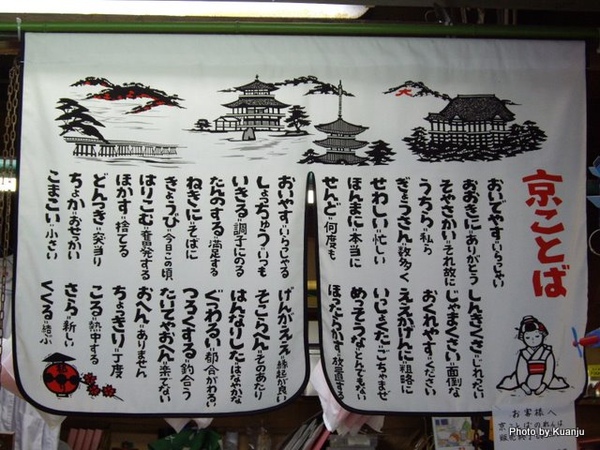 京ことば
おいでやす＝いらっしゃい
おおきに＝ありがとう
そやさかい＝それ故に
うちら＝私ら
ぎょうさん＝数多く
せわしい＝忙しい
ほんまに＝本当に
せんど＝何度も
しんきくさ＝じれったい
じゃまくさい＝面倒な
おくれやす＝ください
ええがんに＝粗略に
いっしょくた＝ごちゃまぜ
めっそうな＝とんでもない
ほったらかす＝放置する
おいやす＝いらっしゃる
しょっちゅう＝いつも
いきる＝調子にのる
たんのする＝満足する
ねきに＝そばに
きょうび＝今日この頃
はりこむ＝奮発する
ほかす＝捨てる
どんつき＝突当り
ちょか＝おせっかい
こまこい＝小さい
げんがええ＝縁起が良い
そこらへん＝そのあたり
はんなりした＝はなやかな
ぐつわるい＝都合がわるい
つろくする＝釣合う
たいてやおへん＝楽でない
おへん＝ありません
ちょっきり＝丁度
こる＝熱中する
さら＝新しい
くくる＝結ぶ
大
お客様へ
京ことばのれんは
Photo by Kuanju